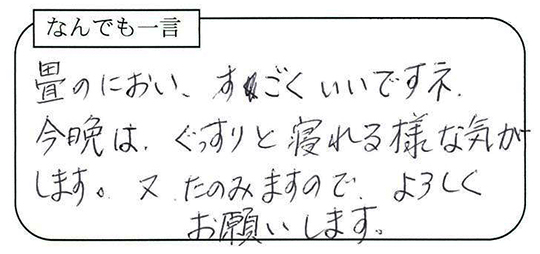 なんでも一言
畳のにおい、すごくいいですネ.
今晩は、ぐっすりと寝れる様な気が
します。又、たのみますので、よろしく
お願いします。